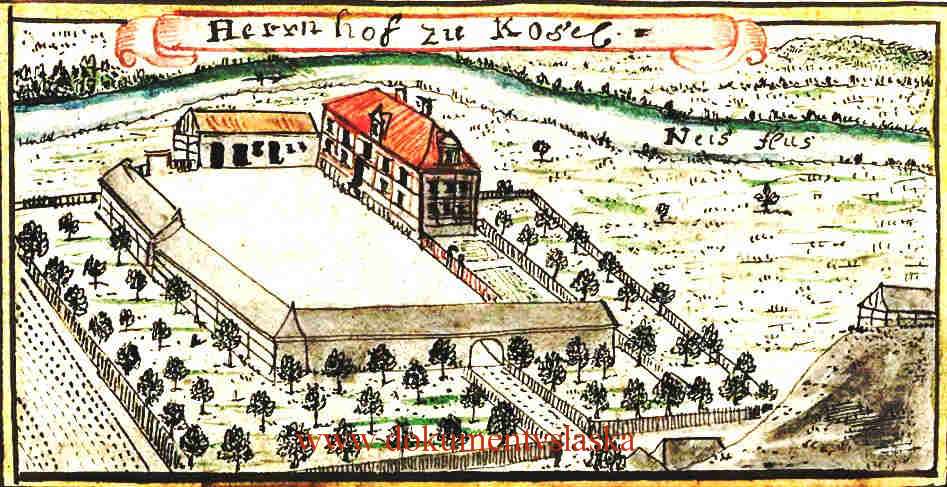 Herrn hof zu Kosel. =
Neis flus
www.dokumentyslaska